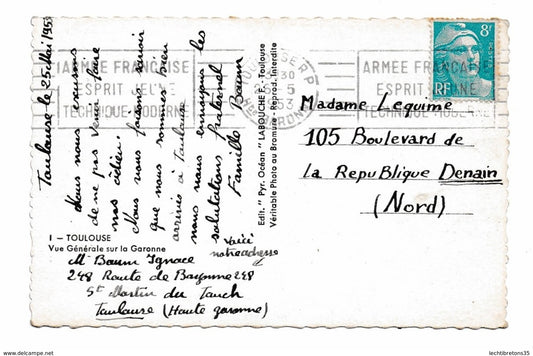 Toulouse le 25 Mai 195
Nous nous excusons
de ne pas venir faire
nos adieu.
Nous vous faisons savoir
que nous sommes bien
arrivés à Toulouse
nous vous envoyons les
salutations fraternel
Famille Baum
1 - TOULOUSE
Vue Générale sur la Garonne
voici
notre adresse
Mr Baum Ignace
248 Route de Bayonne 248
St Martin du Touch
Toulouse (Haute garonne)
Edit. "Pyr. Océan" LABOUCHE F. - Toulouse
Véritable Photo au Bromure - Reprod. Interdite
ARMÉE FRANÇAISE
ESPRIT JEUNE
TECHNIQUE MODERNE
30
5
53
ARMÉE FRANÇAISE
ESPRIT JEUNE
TECHNIQUE MODERNE
8F
RF
Madame Leguime
105 Boulevard de
la Republique Denain
(Nord)
lechtibretons35